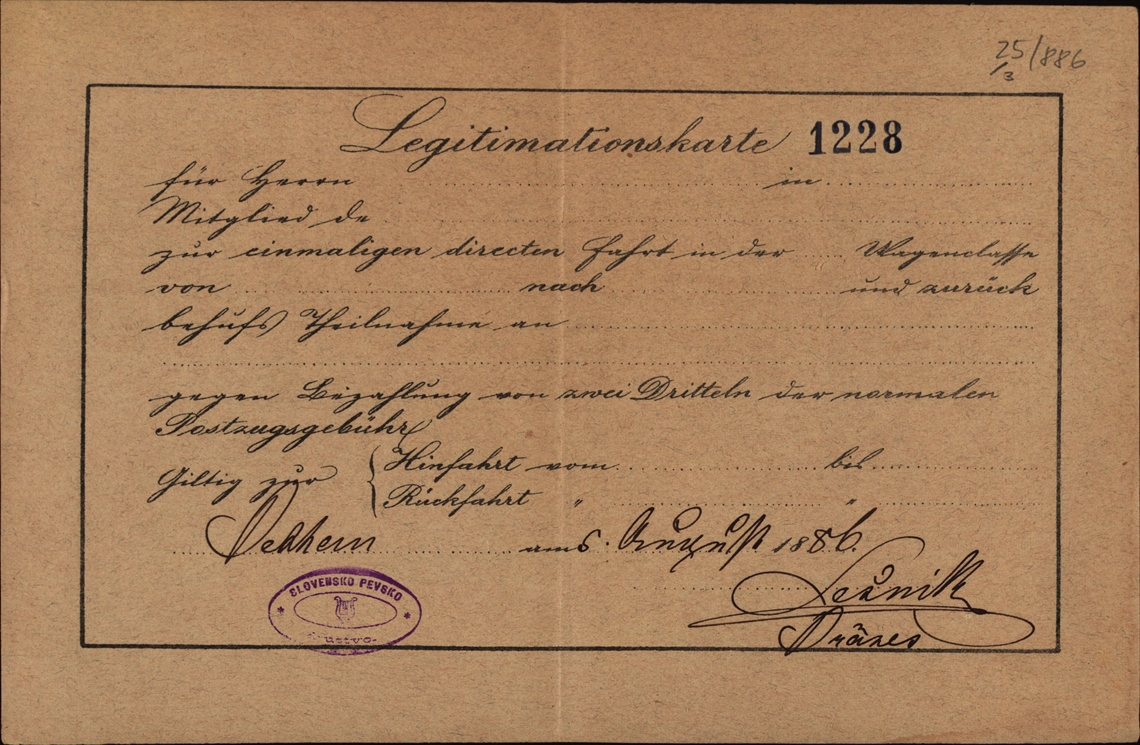 25/3/886
Legitimationskarte 1228
für Herrn in
Mitglied de
zur einmaligen directen Fahrt in der Wagenclasse
von nach und zurück
behufs Theilnahme an
gegen Bezahlung von zwei Dritteln der normalen
Postzugsgebühr
Giltig zur { Hinfahrt vom bis
Rückfahrt " "
am 6. August 1886.
SLOVENSKO PEVSKO
društvo
Präses